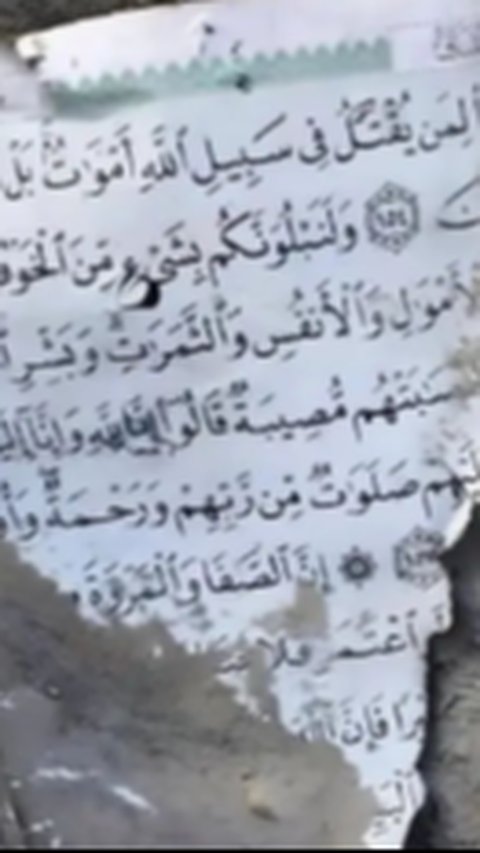 لِمَن يُقْتَلُ فِى سَبِيلِ ٱللَّهِ أَمْوَٰتٌۢ بَلْ
١٥٤ وَلَنَبْلُوَنَّكُم بِشَىْءٍ مِّنَ ٱلْخَوْفِ
ٱلْأَمْوَٰلِ وَٱلْأَنفُسِ وَٱلثَّمَرَٰتِ وَبَشِّرِ
مُّصِيبَةٌ قَالُوٓا۟ إِنَّا لِلَّهِ وَإِنَّآ
صَلَوَٰتٌ مِّن رَّبِّهِمْ وَرَحْمَةٌ
۞ إِنَّ ٱلصَّفَا وَٱلْمَرْوَةَ
ٱعْتَمَرَ فَلَا
فَإِنَّ ٱللَّهَ